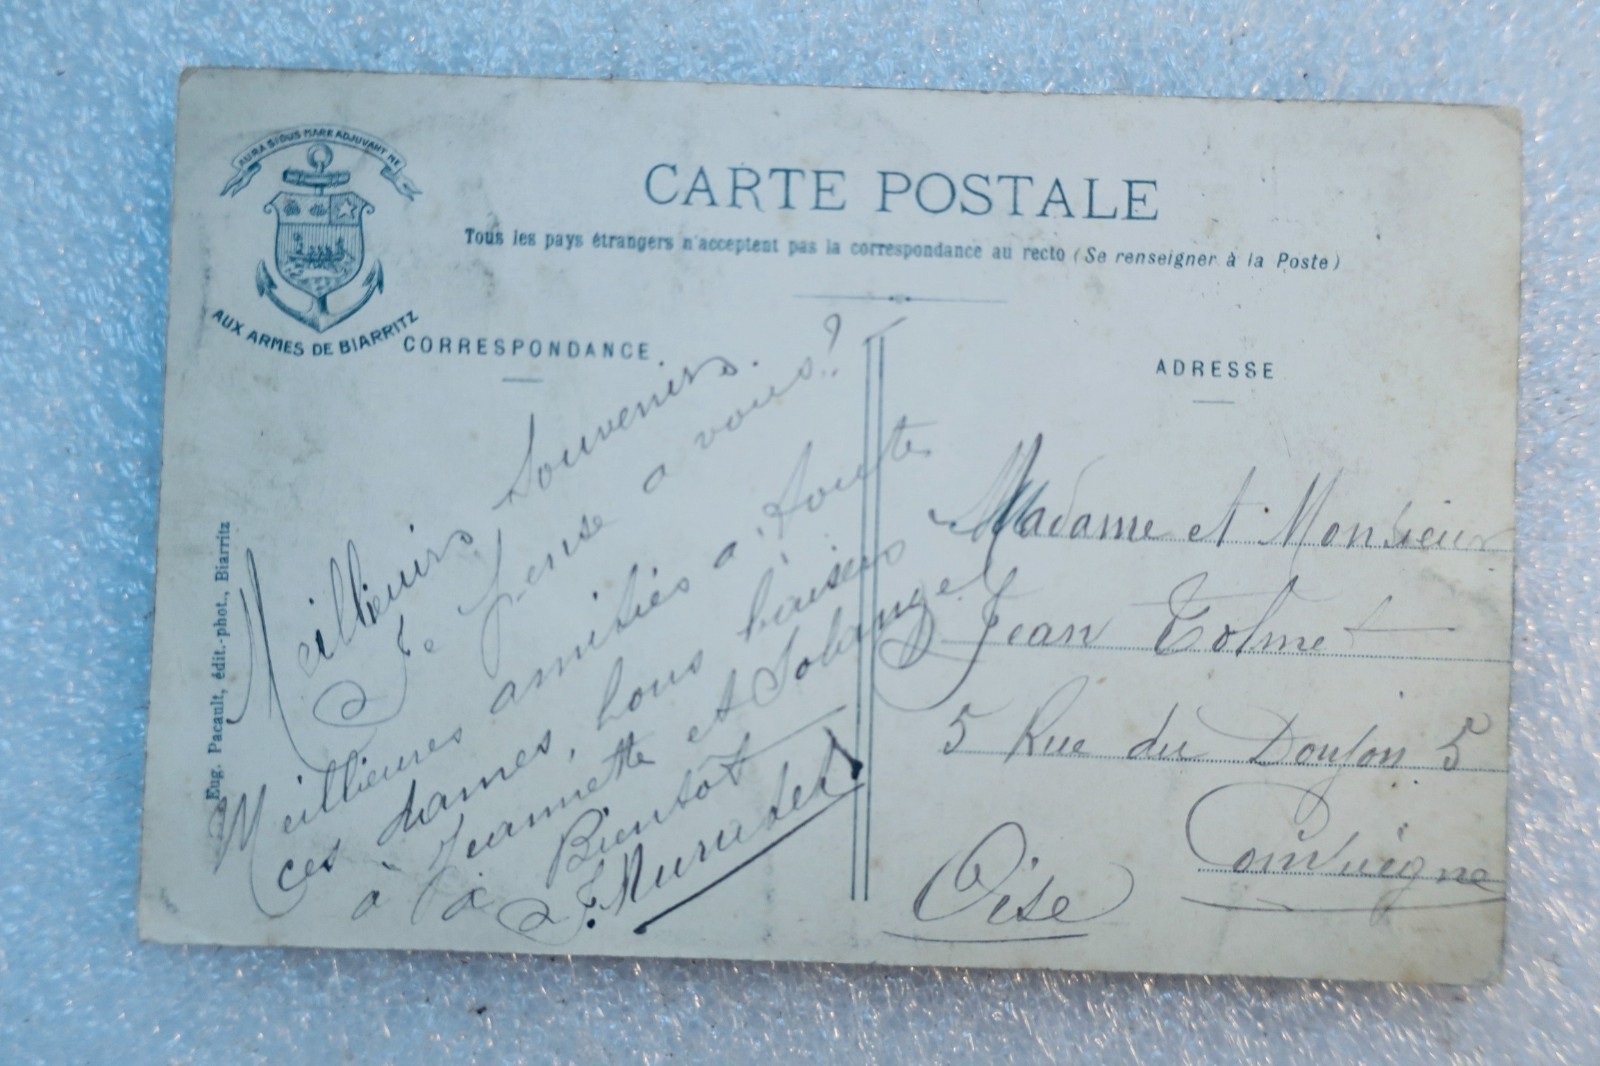 AURA SIDUS MARE ADJUVANT ME
AUX ARMES DE BIARRITZ
CARTE POSTALE
Tous les pays étrangers n'acceptent pas la correspondance au recto (Se renseigner à la Poste)
CORRESPONDANCE
Meillieurs Souvenirs.
Je pense a vous!?
Meillieures amitiés a toutes
ces dames, bons baisers
à Jeannette et Solange
à Bientôt
Eug. Pacault, édit.-phot., Biarritz
ADRESSE
Madame et Monsieur
Jean Tolmet
5 Rue du Donjon 5
Compiègne
Oise